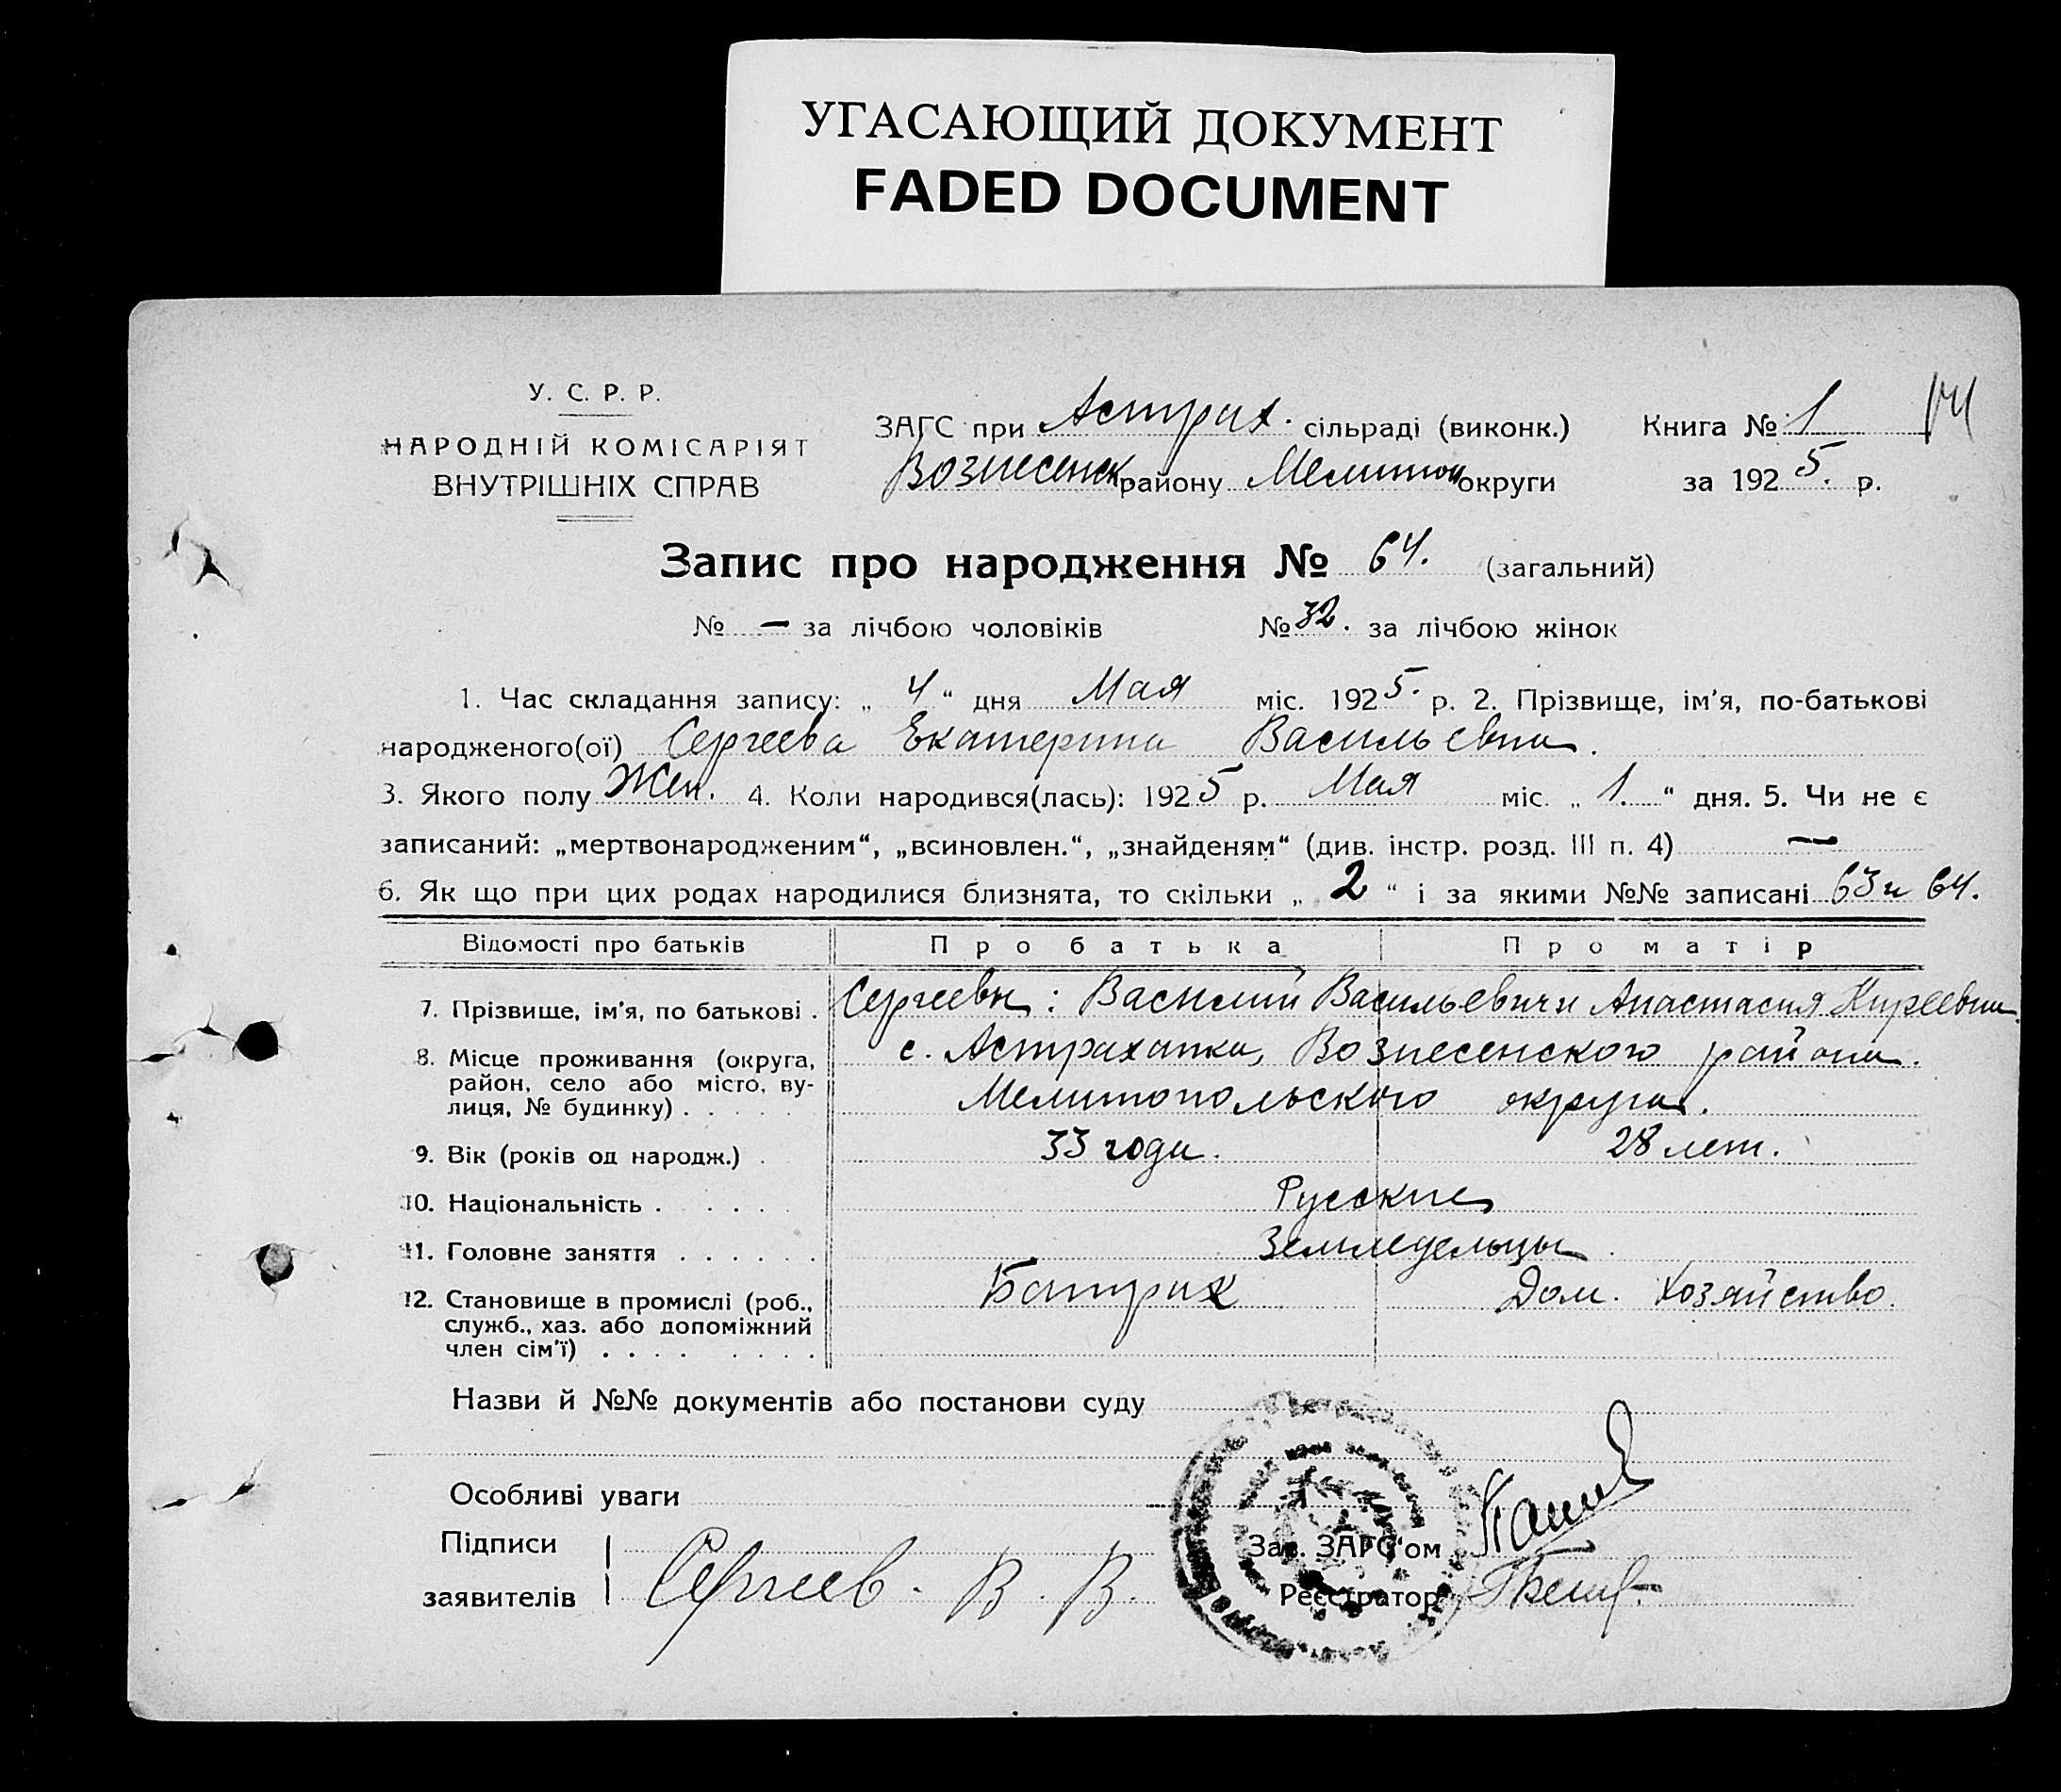 УГАСАЮЩИЙ ДОКУМЕНТ
FADED DOCUMENT
У. С. Р. Р.
НАРОДНІЙ КОМІСАРІЯТ
ВНУТРІШНІХ СПРАВ
ЗАГС при Астрах. сільраді (виконк.) Книга № 1
Вознесенск району Мелитоп округи за 1925. р.
Запис про народження № 64. (загальний)
№ — за лічбою чоловіків № 32. за лічбою жінок
1. Час складання запису: „ 4 “ дня Мая міс. 1925. р. 2. Прізвище, ім'я, по-батькові
народженого(ої) Сергеева Екатерина Васильевна.
3. Якого полу Жен. 4. Коли народився(лась): 1925 р. Мая міс. „ 1. “ дня. 5. Чи не є
записаний: „мертвонародженим“, „всиновлен.“, „знайденям“ (див. інстр. розд. III п. 4) —
6. Як що при цих родах народилися близнята, то скільки „ 2 “ і за якими №№ записані 63 и 64.
Відомості про батьків Про батька Про матір
7. Прізвище, ім'я, по батькові . Сергеевы: Василий Васильевич и Анастасия Киреевна.
8. Місце проживання (округа, с. Астраханка, Вознесенского района.
район, село або місто, ву-
лиця, № будинку) . . . . . Мелитопольского округа.
9. Вік (років од народж.) . 33 года. 28 лет.
10. Національність . . . . . . Русские
11. Головне заняття . . . . . . Земледельцы
12. Становище в промислі (роб., Батрак Дом. Хозяйство.
служб., хаз. або допоміжний
член сім'ї) . . . . . . . .
Назви й №№ документів або постанови суду
Особливі уваги
Підписи
Зав. ЗАГС'ом
заявителів Сергеев. В. В. Реєстратор